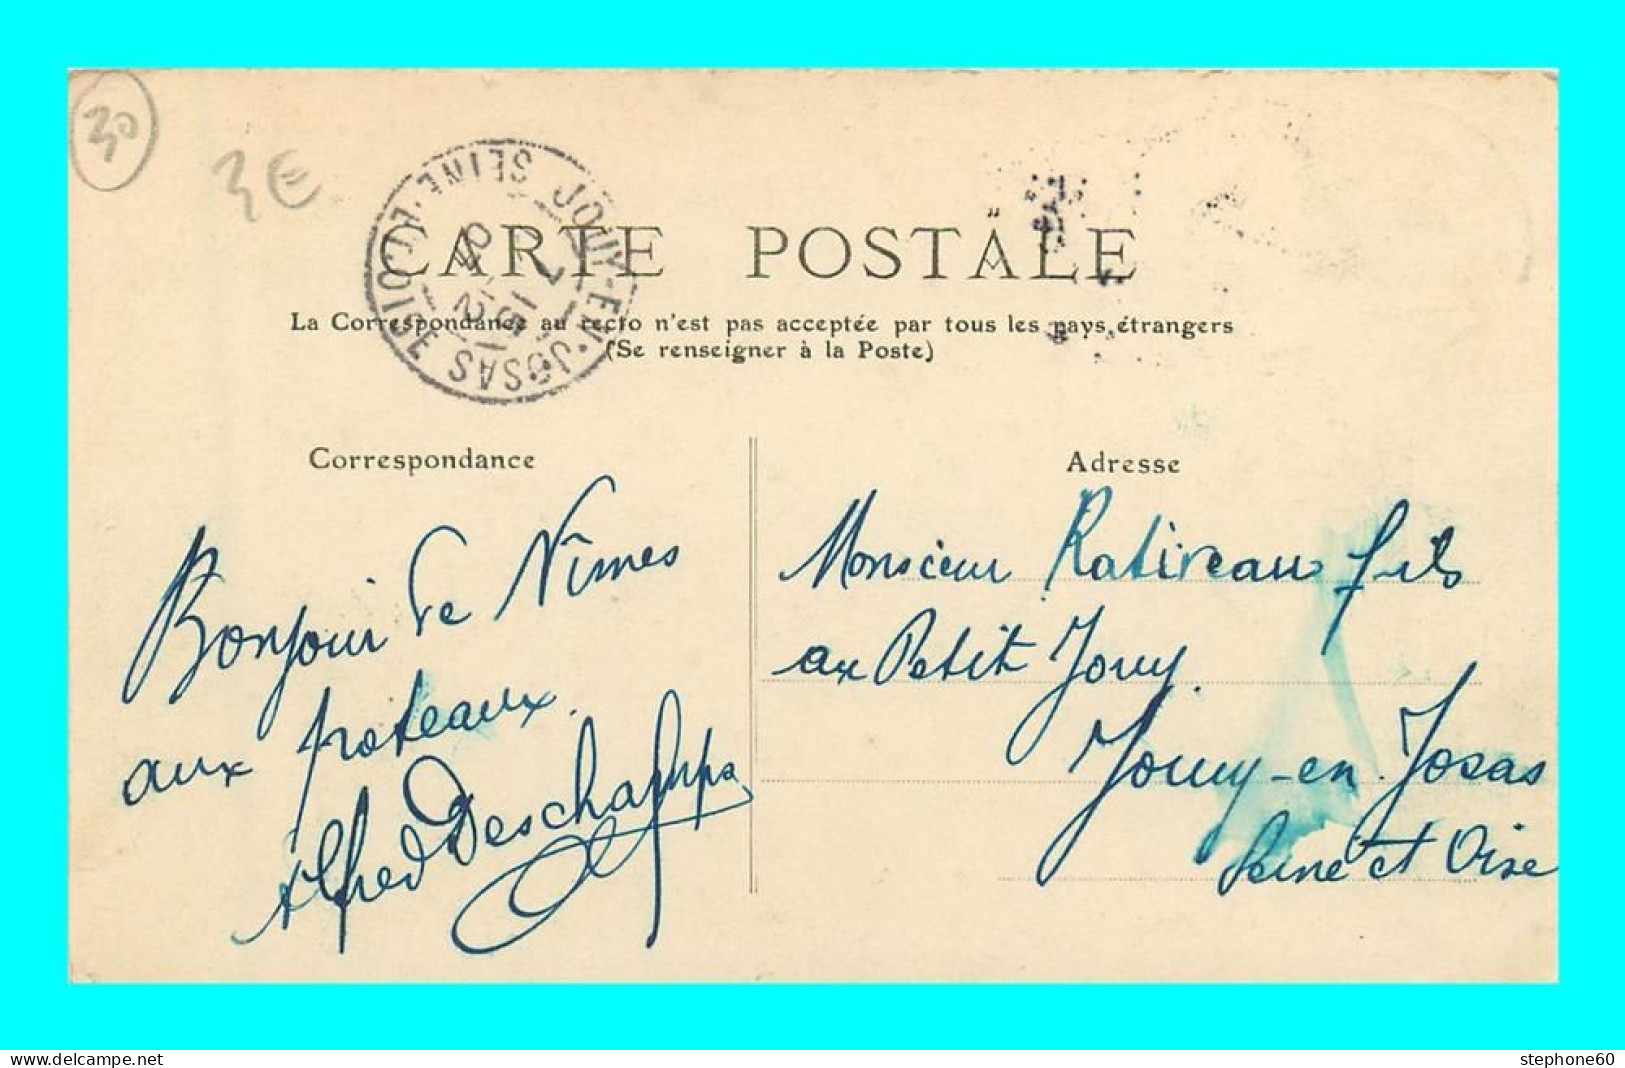 30
3€
JOUY-EN-JOSAS
SEINE-ET-OISE
CARTE POSTALE
La Correspondance au recto n'est pas acceptée par tous les pays étrangers
(Se renseigner à la Poste)
Correspondance
Bonjour de Nîmes
aux poteaux.
Alfred Deschamps
Adresse
Monsieur Rativeau fils
au Petit Jouy.
Jouy-en-Josas
Seine et Oise
www.delcampe.net
stephone60